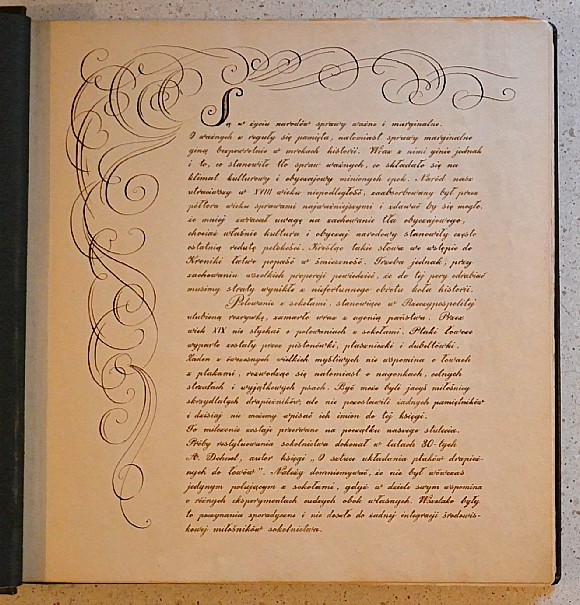 Są w życiu narodów sprawy ważne i marginalne.
O ważnych z reguły się pamięta, natomiast sprawy marginalne
giną bezpowrotnie w mrokach historii. Wraz z nimi ginie jednak
i to, co stanowiło tło spraw ważnych, co składało się na
klimat kulturowy i obyczajowy minionych epok. Naród nasz
utraciwszy w XVIII wieku niepodległość, zaabsorbowany był przez
półtora wieku sprawami najważniejszymi i zdawać by się mogło,
że mniej zwracał uwagę na zachowanie tła obyczajowego,
chociaż właśnie kultura i obyczaj narodowy stanowiły często
ostatnią redutę polskości. Kreśląc takie słowa we wstępie do
Kroniki łatwo popaść w śmieszność. Trzeba jednak, przy
zachowaniu wszelkich proporcji powiedzieć, że do tej pory odrabiać
musimy straty wynikłe z niefortunnego obrotu koła historii.
Polowanie z sokołami, stanowiące w Rzeczypospolitej
ulubioną rozrywkę, zamarło wraz z agonią państwa. Przez
wiek XIX nie słychać o polowaniach z sokołami. Ptaki łowcze
wyparte zostały przez pistonówki, ptaszniczki i dubeltówki.
Żaden z ówczesnych wielkich myśliwych nie wspomina o łowach
z ptakami, rozwodząc się natomiast o nagonkach, celnych
strzałach i wyjątkowych psach. Być może byli jacyś miłośnicy
skrzydlatych drapieżników, ale nie pozostawili żadnych pamiętników
i dzisiaj nie możemy wpisać ich imion do tej księgi.
To milczenie zostaje przerwane na początku naszego stulecia.
Próby restytuowania sokolnictwa dokonał w latach 30-tych
A. Dehnel, autor księgi „O sztuce układania ptaków drapież-
nych do łowów". Należy domniemywać, że nie był wówczas
jedynym polującym z sokołami, gdyż w dziele swym wspomina
o różnych eksperymentach cudzych obok własnych. Wszelako były
to poczynania sporadyczne i nie doszło do żadnej integracji środowis-
kowej miłośników sokolnictwa.